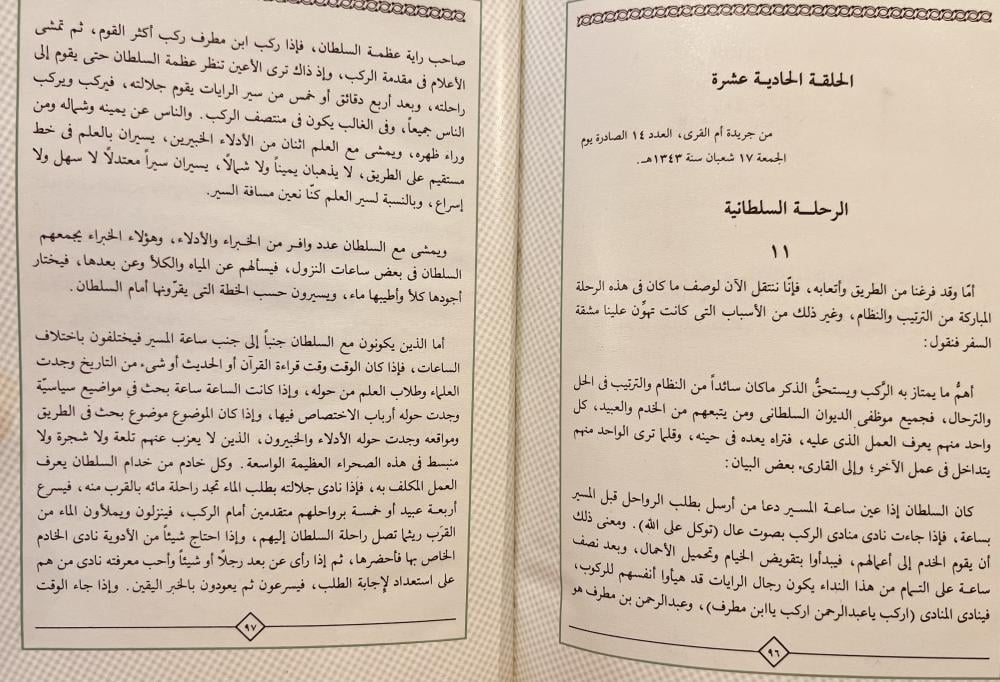 الحلقة الحادية عشرة
من جريدة أم القرى، العدد ١٤ الصادرة يوم
الجمعة ١٧ شعبان سنة ١٣٤٣هـ.
الرحلــة السلطانية
١١
أمّا وقد فرغنا من الطريق وأتعابه، فإنّا ننتقل الآن لوصف ما كان فى هذه الرحلة
المباركة من الترتيب والنظام، وغير ذلك من الأسباب التى كانت تهوّن علينا مشقة
السفر فنقول:
أهمُّ ما يمتاز به الرَّكب ويستحقُّ الذكر ماكان سائداً من النظام والترتيب فى الحل
والترحال، فجميع موظفى الديوان السلطانى ومن يتبعهم من الخدم والعبيد، كل
واحد منهم يعرف العمل الذى عليه، فتراه يعده فى حينه، وقلما ترى الواحد منهم
يتداخل فى عمل الآخر؛ وإلى القارىء بعض البيان:
كان السلطان إذا عين ساعة المسير دعا من أرسل بطلب الرواحل قبل المسير
بساعة، فإذا جاءت نادى منادى الركب بصوت عال (توكل على الله). ومعنى ذلك
أن يقوم الخدم إلى أعمالهم، فيبدأوا بتقويض الخيام وتحميل الأحمال، وبعد نصف
ساعة على التمام من هذا النداء يكون رجال الرايات قد هيأوا أنفسهم للركوب،
فينادى المنادى (اركب ياعبدالرحمن اركب ياابن مطرف)، وعبدالرحمن بن مطرف هو
٩٦
صاحب راية عظمة السلطان، فإذا ركب ابن مطرف ركب أكثر القوم، ثم تمشى
الأعلام فى مقدمة الركب، وإذ ذاك ترى الأعين تنظر عظمة السلطان حتى يقوم إلى
راحلته، وبعد أربع دقائق أو خمس من سير الرايات يقوم جلالته، فيركب ويركب
الناس جميعاً، وفى الغالب يكون فى منتصف الركب. والناس عن يمينه وشماله ومن
وراء ظهره، ويمشى مع العلم اثنان من الأدلاء الخبيرين، يسيران بالعلم فى خط
مستقيم على الطريق، لا يذهبان يميناً ولا شمالًا، يسيران سيراً معتدلًا لا سهل ولا
إسراع، وبالنسبة لسير العلم كنّا نعين مسافة السير.
ويمشى مع السلطان عدد وافر من الخبراء والأدلاء، وهؤلاء الخبراء يجمعهم
السلطان فى بعض ساعات النزول، فيسألهم عن المياه والكلأ وعن بعدها، فيختار
أجودها كلأ وأطيبها ماء، ويسيرون حسب الخطة التى يقرّونها أمام السلطان.
أما الذين يكونون مع السلطان جنباً إلى جنب ساعة المسير فيختلفون باختلاف
الساعات، فإذا كان الوقت وقت قراءة القرآن أو الحديث أو شىء من التاريخ وجدت
العلماء وطلاب العلم من حوله، وإذا كانت الساعة ساعة بحث فى مواضيع سياسيّة
وجدت حوله أرباب الاختصاص فيها، وإذا كان الموضوع موضوع بحث فى الطريق
ومواقعه وجدت حوله الأدلاء والخبيرون، الذين لا يعزب عنهم تلعة ولا شجرة ولا
منبسط فى هذه الصحراء العظيمة الواسعة. وكل خادم من خدام السلطان يعرف
العمل المكلف به، فإذا نادى جلالته بطلب الماء تجد راحلة مائه بالقرب منه، فيسرع
أربعة عبيد أو خمسة برواحلهم متقدمين أمام الركب، فينزلون ويملأون الماء من
القرَب ريثما تصل راحلة السلطان إليهم، وإذا احتاج شيئاً من الأدوية نادى الخادم
الخاص بها فأحضرها، ثم إذا رأى عن بعد رجلًا أو شيئاً وأحب معرفته نادى من هم
على استعداد لإجابة الطلب، فيسرعون ثم يعودون بالخبر اليقين. وإذا جاء الوقت
٩٧